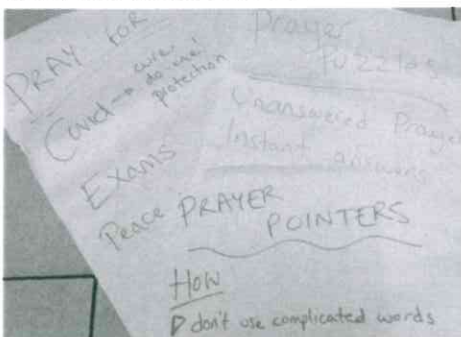 PRAY FOR
Covid → cure
do one!
protection
Exams
Peace
Prayer
Puzzles
Unanswered Prayer
Instant answers
PRAYER
POINTERS
How
▷ don't use complicated words